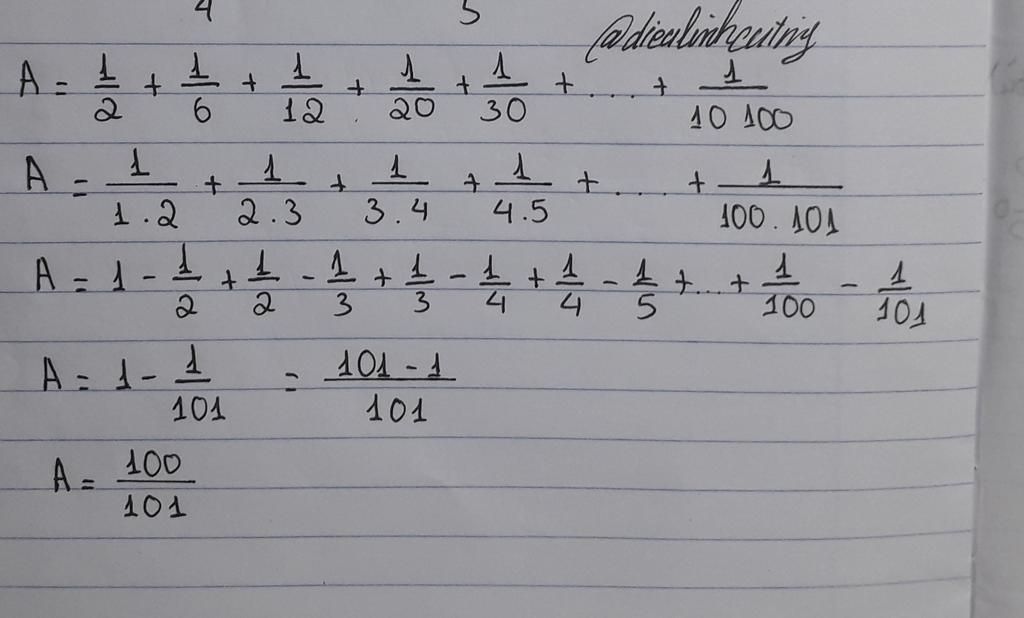 4 5
@dieulinhcutny
A = 1/2 + 1/6 + 1/12 + 1/20 + 1/30 + .... + 1/10 100
A = 1/1.2 + 1/2.3 + 1/3.4 + 1/4.5 + .... + 1/100.101
A = 1 - 1/2 + 1/2 - 1/3 + 1/3 - 1/4 + 1/4 - 1/5 + ... + 1/100 - 1/101
A = 1 - 1/101 = 101 - 1/101
A = 100/101